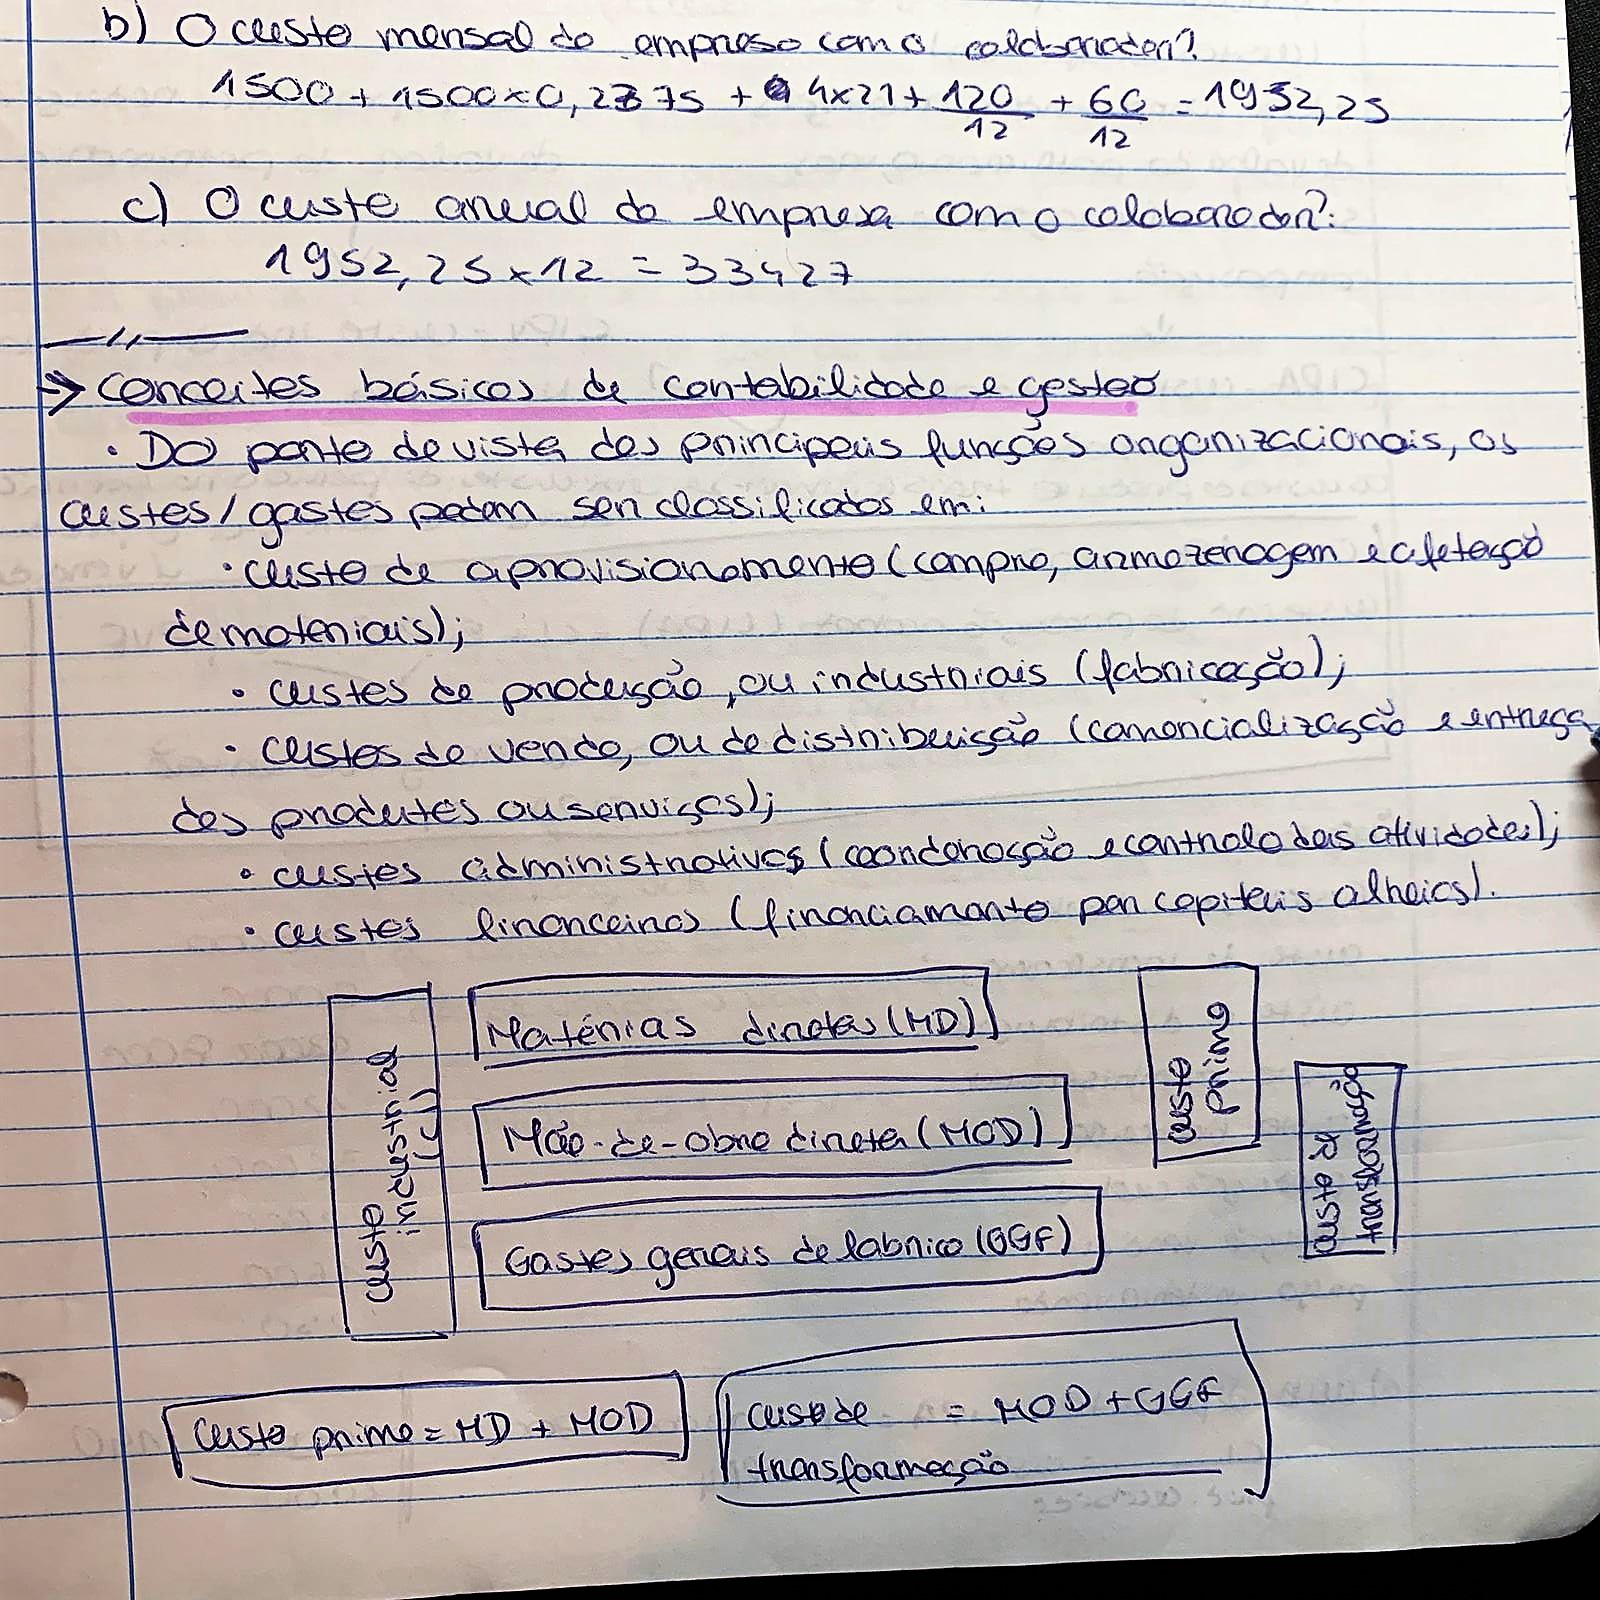 b) O custo mensal da empresa com o colaborador?
1500 + 1500 × 0,2375 + 4×21 + 120/12 + 60/12 = 1952,25
c) O custo anual da empresa com o colaborador?:
1952,25 × 12 = 33427
—//—
→ Conceitos básicos de contabilidade e gestão
· Do ponto de vista das principais funções organizacionais, os
custos/gastos podem ser classificados em:
· custo de aprovisionamento (compra, armazenagem e afetação
de materiais);
· custos de produção, ou industriais (fabricação);
· custos de venda, ou de distribuição (comercialização e entrega
dos produtos ou serviços);
· custos administrativos (coordenação e controlo das atividades);
· custos financeiros (financiamento por capitais alheios).
custo industrial (CI)
Matérias diretas (MD)
custo primo
Mão-de-obra direta (MOD)
custo de transformação
Gastos gerais de fabrico (GGF)
Custo primo = MD + MOD
custo de = MOD + GGF
transformação